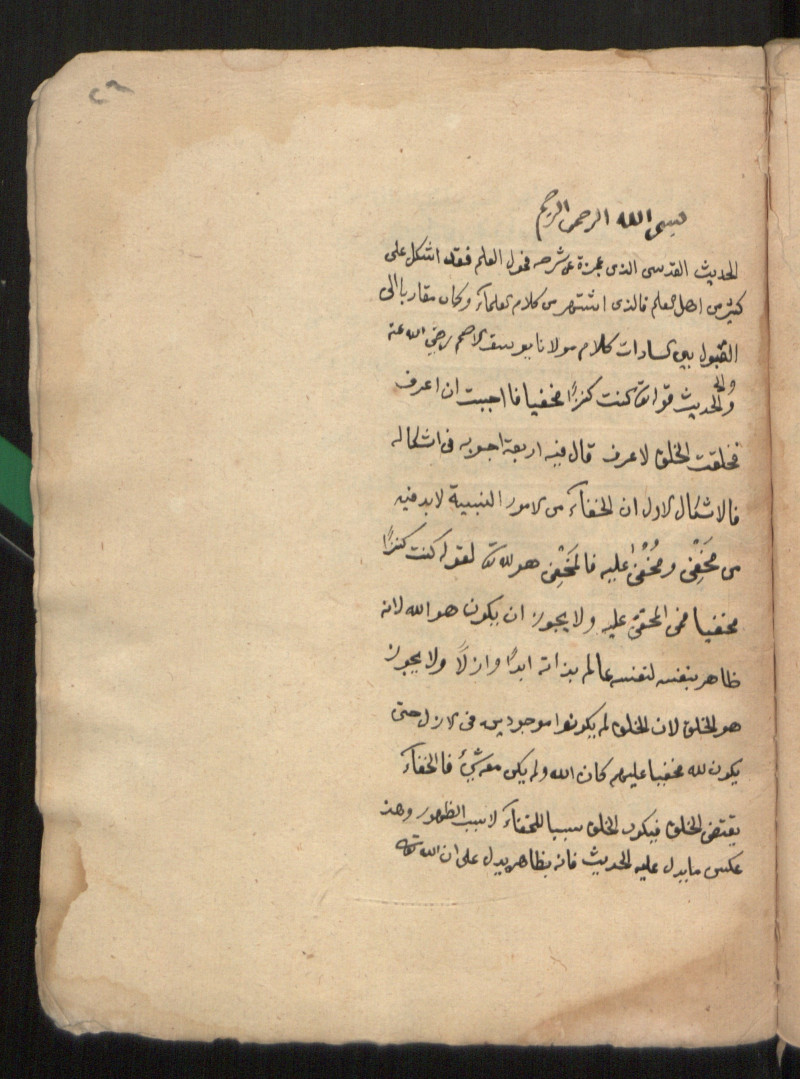 ٢٩
بسم الله الرحمن الرحيم
الحديث القدسى الذى عجزة عن شرحه فحول العلم فقد اشكل على
كثير من اهل العلم فالذى اشتهر من كلام العلماء وكان مقاربا الى
القبول بين السادات كلام مولانا يوسف الاصم رضي الله عنه
والحديث قوله تعا كنت كنزًا مخفيا فاحببت ان اعرف
فخلقت الخلق لاعرف قال فيه اربعة اجوبه فى اشكاله
فالاشكال الاول ان الخفاء من الامور النسبية لابد فيه
من مخفِىْ ومُخْفىٰ عليه فالمَخْفِى هو الله تعا لقوله كنت كنزًا
مخفيا فمن المخفى عليه ولا يجوز ان يكون هو الله لانه
ظاهر بنفسه لنفسه عالم بذاته ابدًا وازلًا ولا يجوز
هو الخلق لان الخلق لم يكونوا موجودين فى الازل حتى
يكون لله مخفيا عليهم كان الله ولم يكن معه شئ فالخفاء
يقتضى الخلق فيكون الخلق سببا للخفاء لا سبب الظهور وهذ
عكس ما يدل عليه الحديث فانه بظاهره يدل على ان الله تعا